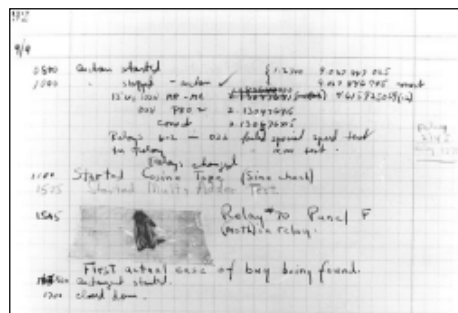 9/9
0800 antan started
1000 " stopped - antan ✓ { 1.2700 9.037 847 025
9.037 846 995 correct
13"uc (032) MP - MC 4.615925059(-2)
(033) PRO 2 2.130476415
correct 2.130676415
Relays 6-2 in 033 failed special speed test
in relay " test.
Relays changed
1100 Started Cosine Tape (Sine check)
1525 Started Multi Adder Test.
1545 Relay #70 Panel F
(moth) in relay.
First actual case of bug being found.
antangent started.
1700 closed down.